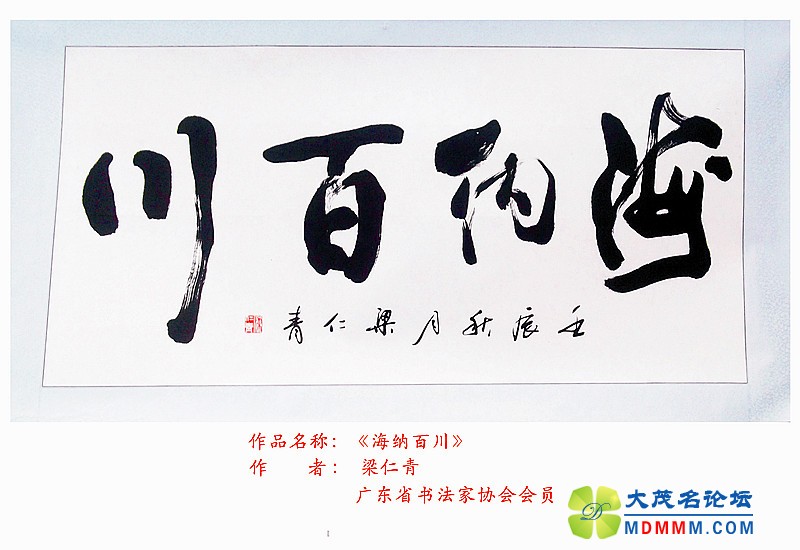 海纳百川
壬辰秋月梁仁青
作品名称：《海纳百川》
作　　者：梁仁青
广东省书法家协会会员
大茂名论坛
MDMMM.COM